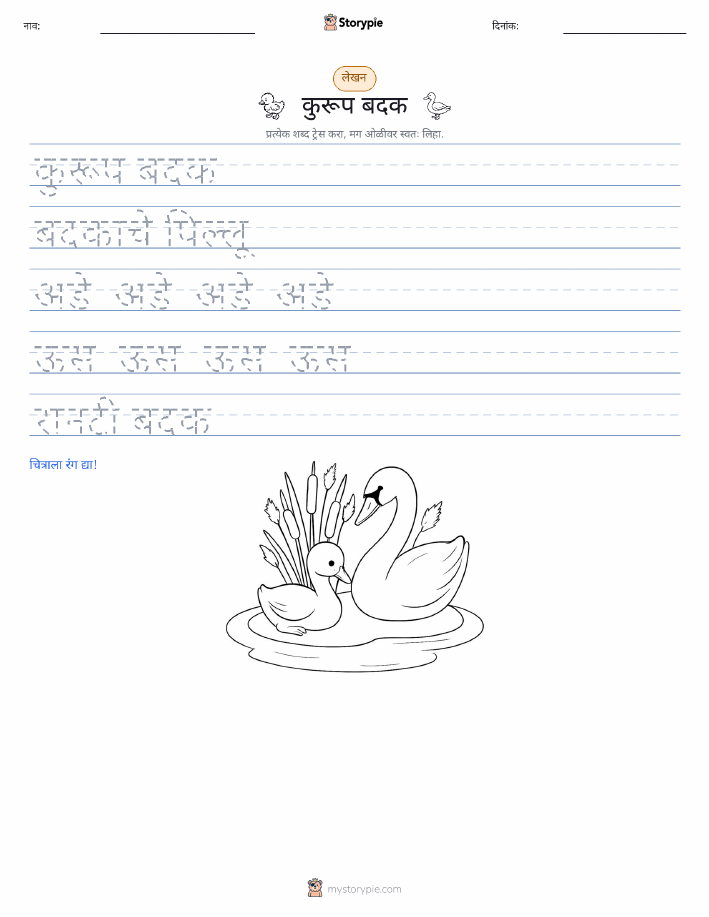 नाव: Storypie दिनांक:
लेखन
कुरूप बदक
प्रत्येक शब्द ट्रेस करा, मग ओळीवर स्वतः लिहा.
कुरूप बदक
बदकाचे पिल्लू
अंडे अंडे अंडे अंडे
ऊस ऊस ऊस ऊस
रानटी बदक
चित्राला रंग द्या!
mystorypie.com